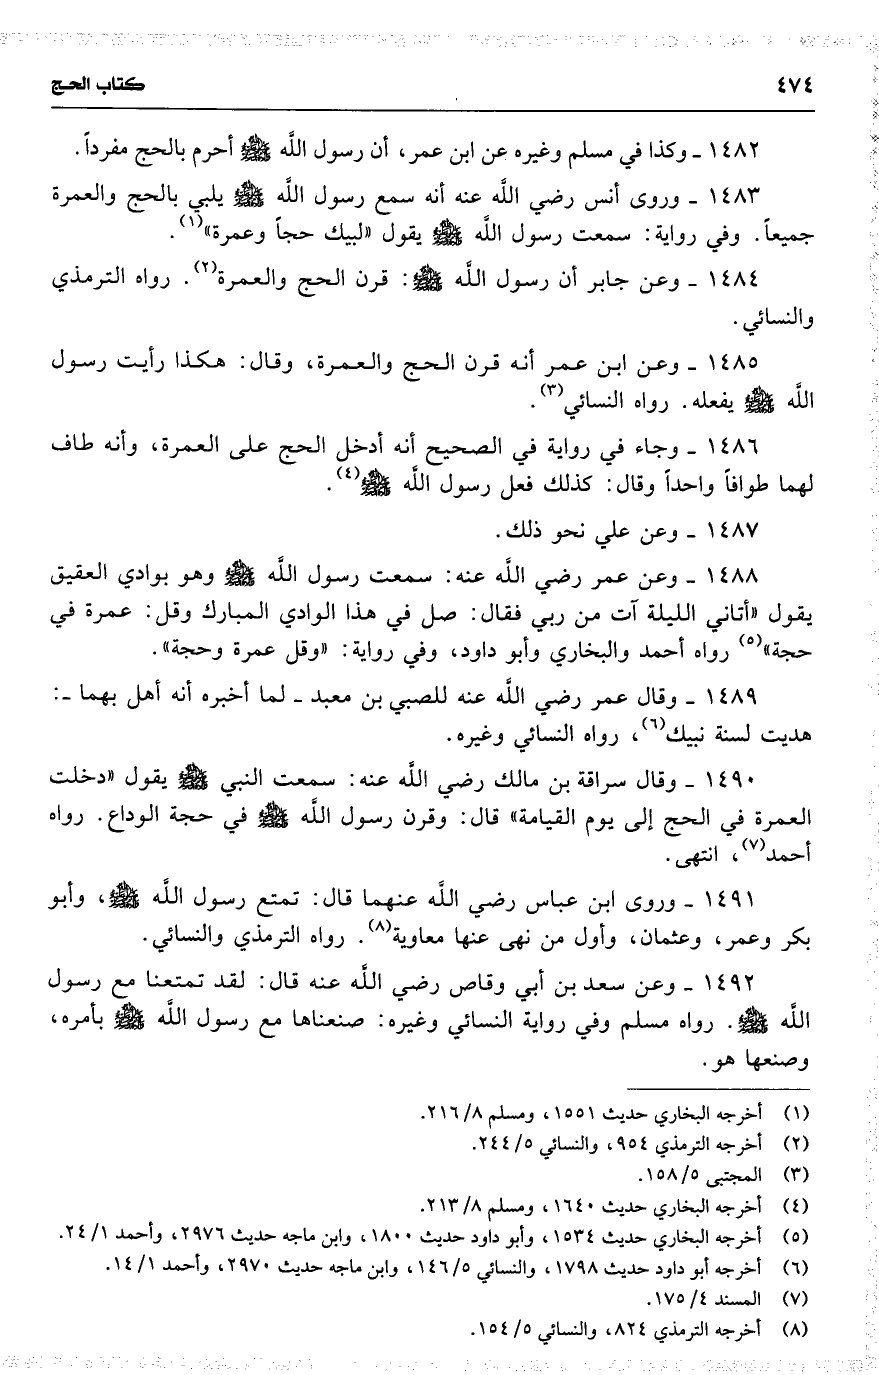 ٤٧٤ كتاب الحج
١٤٨٢ ـ وكذا في مسلم وغيره عن ابن عمر، أن رسول اللَّه ﷺ أحرم بالحج مفرداً.
١٤٨٣ ـ وروى أنس رضي اللَّه عنه أنه سمع رسول اللَّه ﷺ يلبي بالحج والعمرة
جميعاً. وفي رواية: سمعت رسول اللَّه ﷺ يقول «لبيك حجاً وعمرة»(١).
١٤٨٤ ـ وعن جابر أن رسول اللَّه ﷺ: قرن الحج والعمرة(٢). رواه الترمذي
والنسائي.
١٤٨٥ ـ وعن ابن عمر أنه قرن الحج والعمرة، وقال: هكذا رأيت رسول
اللَّه ﷺ يفعله. رواه النسائي(٣).
١٤٨٦ ـ وجاء في رواية في الصحيح أنه أدخل الحج على العمرة، وأنه طاف
لهما طوافاً واحداً وقال: كذلك فعل رسول اللَّه ﷺ(٤).
١٤٨٧ ـ وعن علي نحو ذلك.
١٤٨٨ ـ وعن عمر رضي اللَّه عنه: سمعت رسول اللَّه ﷺ وهو بوادي العقيق
يقول «أتاني الليلة آت من ربي فقال: صل في هذا الوادي المبارك وقل: عمرة في
حجة»(٥) رواه أحمد والبخاري وأبو داود، وفي رواية: «وقل عمرة وحجة».
١٤٨٩ ـ وقال عمر رضي اللَّه عنه للصبي بن معبد ـ لما أخبره أنه أهل بهما ـ:
هديت لسنة نبيك(٦)، رواه النسائي وغيره.
١٤٩٠ ـ وقال سراقة بن مالك رضي اللَّه عنه: سمعت النبي ﷺ يقول «دخلت
العمرة في الحج إلى يوم القيامة» قال: وقرن رسول اللَّه ﷺ في حجة الوداع. رواه
أحمد(٧)، انتهى.
١٤٩١ ـ وروى ابن عباس رضي اللَّه عنهما قال: تمتع رسول اللَّه ﷺ، وأبو
بكر وعمر، وعثمان، وأول من نهى عنها معاوية(٨). رواه الترمذي والنسائي.
١٤٩٢ ـ وعن سعد بن أبي وقاص رضي اللَّه عنه قال: لقد تمتعنا مع رسول
اللَّه ﷺ. رواه مسلم وفي رواية النسائي وغيره: صنعناها مع رسول اللَّه ﷺ بأمره،
وصنعها هو.
(١) أخرجه البخاري حديث ١٥٥١، ومسلم ٢١٦/٨.
(٢) أخرجه الترمذي ٩٥٤، والنسائي ٢٤٤/٥.
(٣) المجتبى ١٥٨/٥.
(٤) أخرجه البخاري حديث ١٦٤٠، ومسلم ٢١٣/٨.
(٥) أخرجه البخاري حديث ١٥٣٤، وأبو داود حديث ١٨٠٠، وابن ماجه حديث ٢٩٧٦، وأحمد ٢٤/١.
(٦) أخرجه أبو داود حديث ١٧٩٨، والنسائي ١٤٦/٥، وابن ماجه حديث ٢٩٧٠، وأحمد ١٤/١.
(٧) المسند ١٧٥/٤.
(٨) أخرجه الترمذي ٨٢٤، والنسائي ١٥٤/٥.